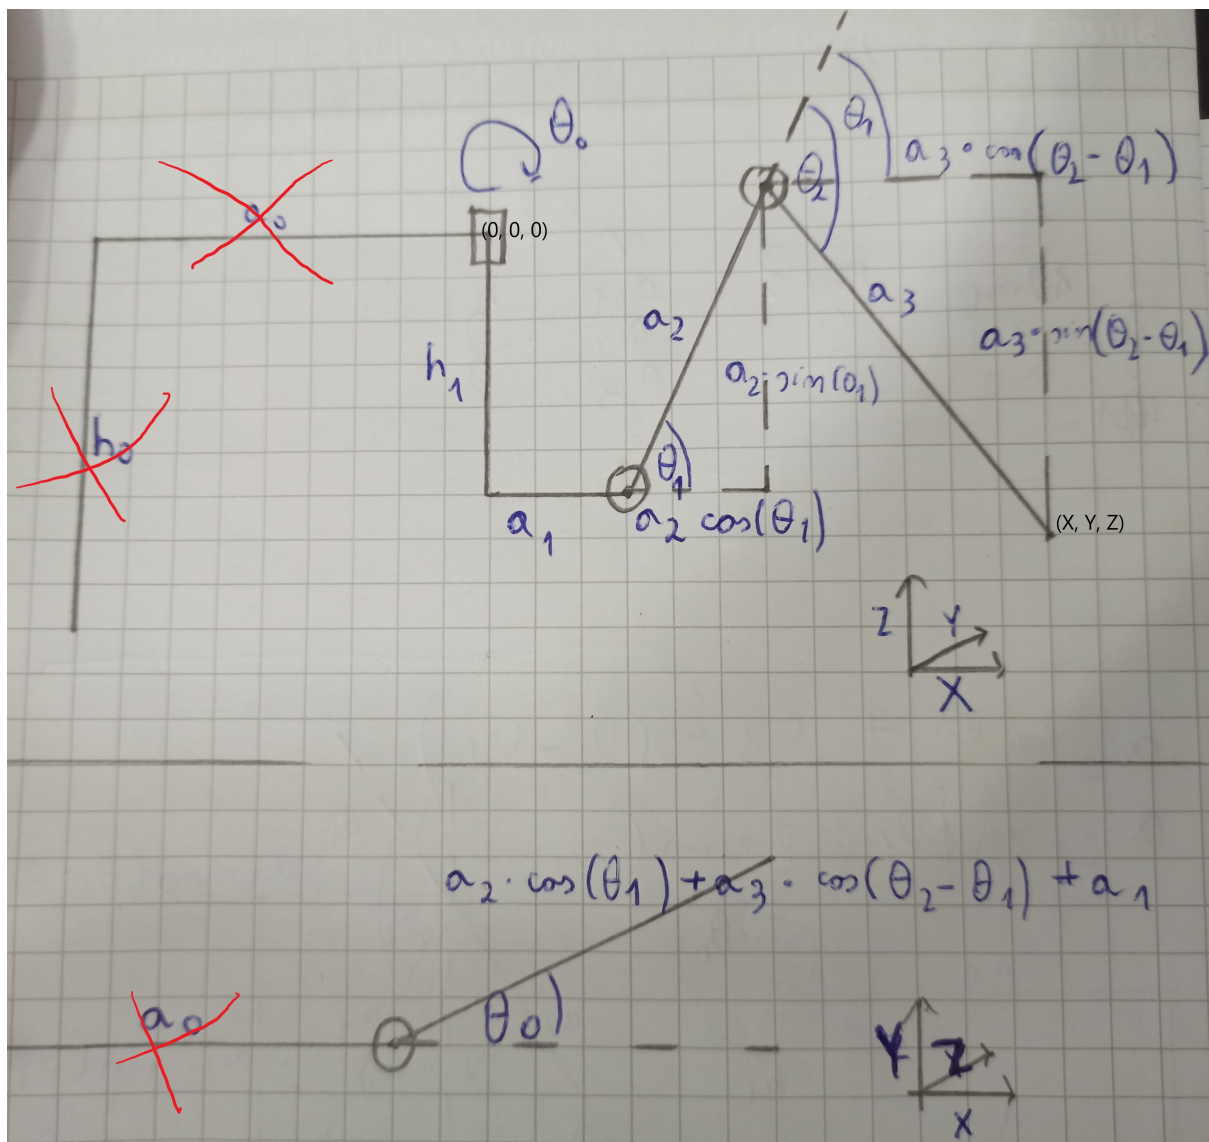 θ₀
θ₁
a₃ · cos(θ₂ - θ₁)
θ₂
a₀
(0, 0, 0)
a₃
a₂
h₁
a₃ · sin(θ₂ - θ₁)
a₂ · sin(θ₁)
h₀
θ₁
a₁
a₂ cos(θ₁)
(X, Y, Z)
Z
Y
X
a₂ · cos(θ₁) + a₃ · cos(θ₂ - θ₁) + a₁
a₀
θ₀
Y
Z
X